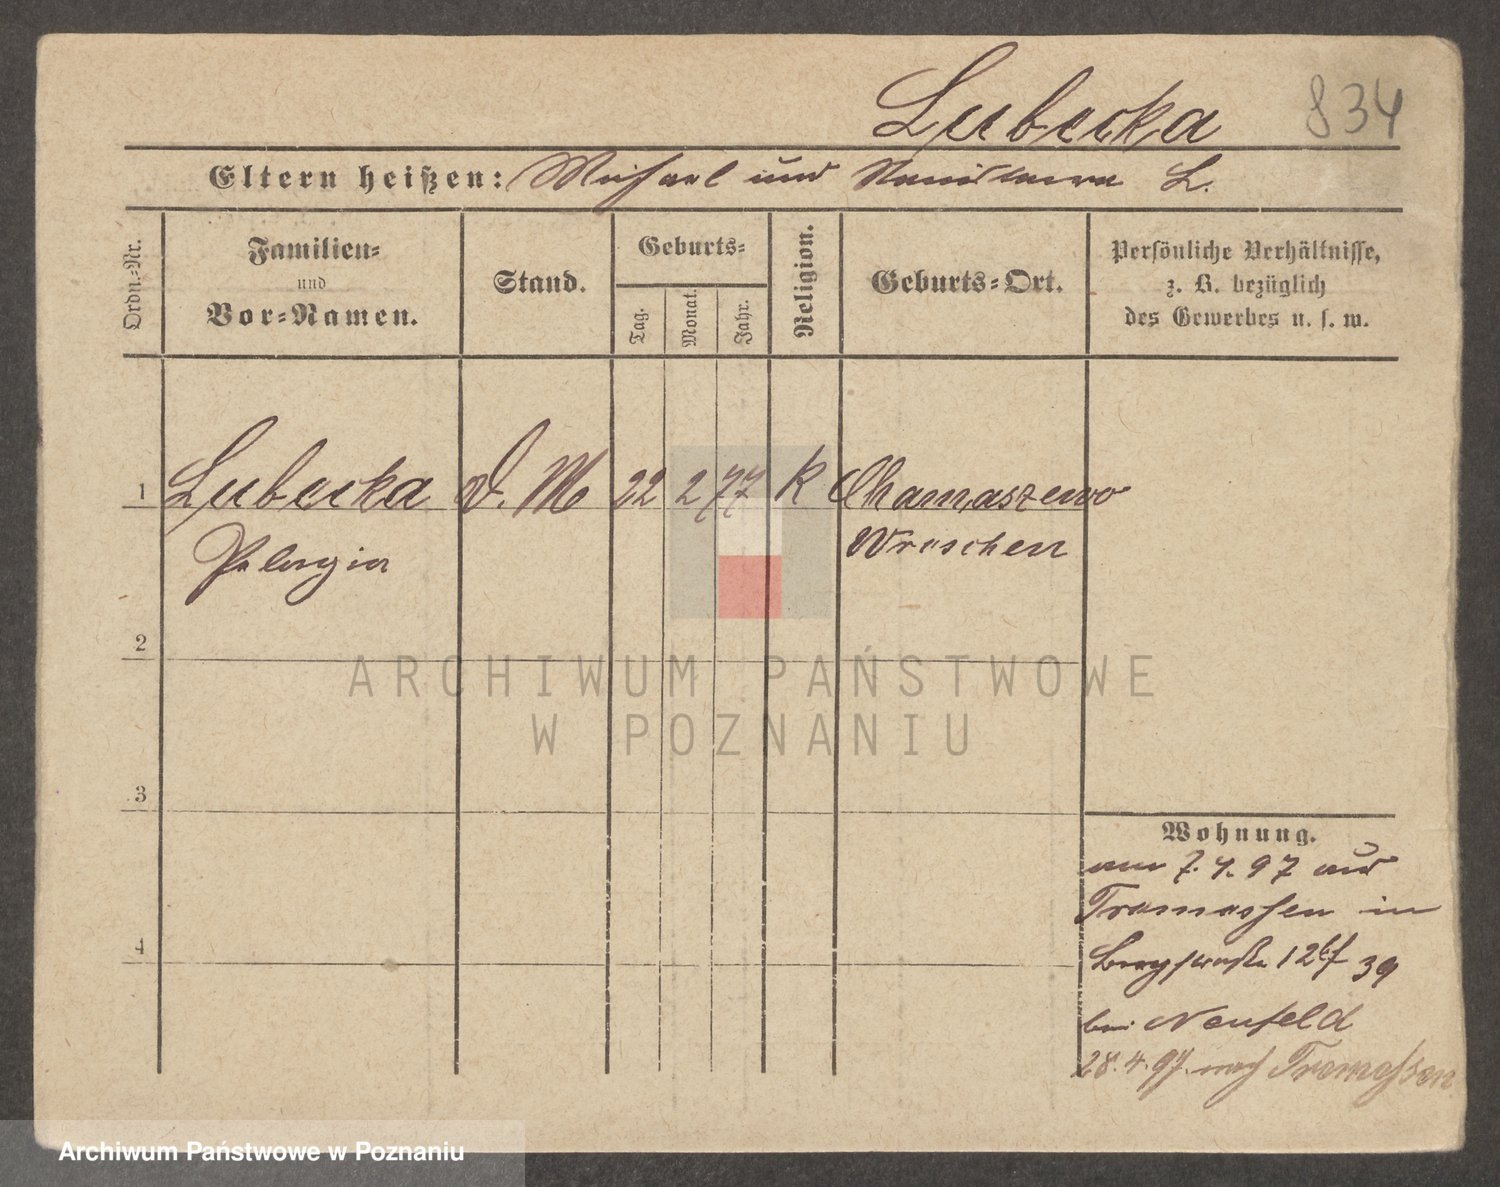 Lubecka 834
Eltern heißen: Michael und L.
Ordn.-Nr.
Familien-
und
Vor-Namen.
Stand.
Geburts-
Tag.
Monat.
Jahr.
Religion.
Geburts-Ort.
Persönliche Verhältnisse,
z. B. bezüglich
des Gewerbes u. s. w.
1 Lubecka d. M 22 2 77 K Chamaszewo
Pelagia Wreschen
2
ARCHIWUM PAŃSTWOWE
W POZNANIU
3
Wohnung.
am 7. 4. 97 aus
Tremessen in
4
Bergstraße 12b/f 39
bei Neufeld
28. 4. 97. nach Tremessen
Archiwum Państwowe w Poznaniu